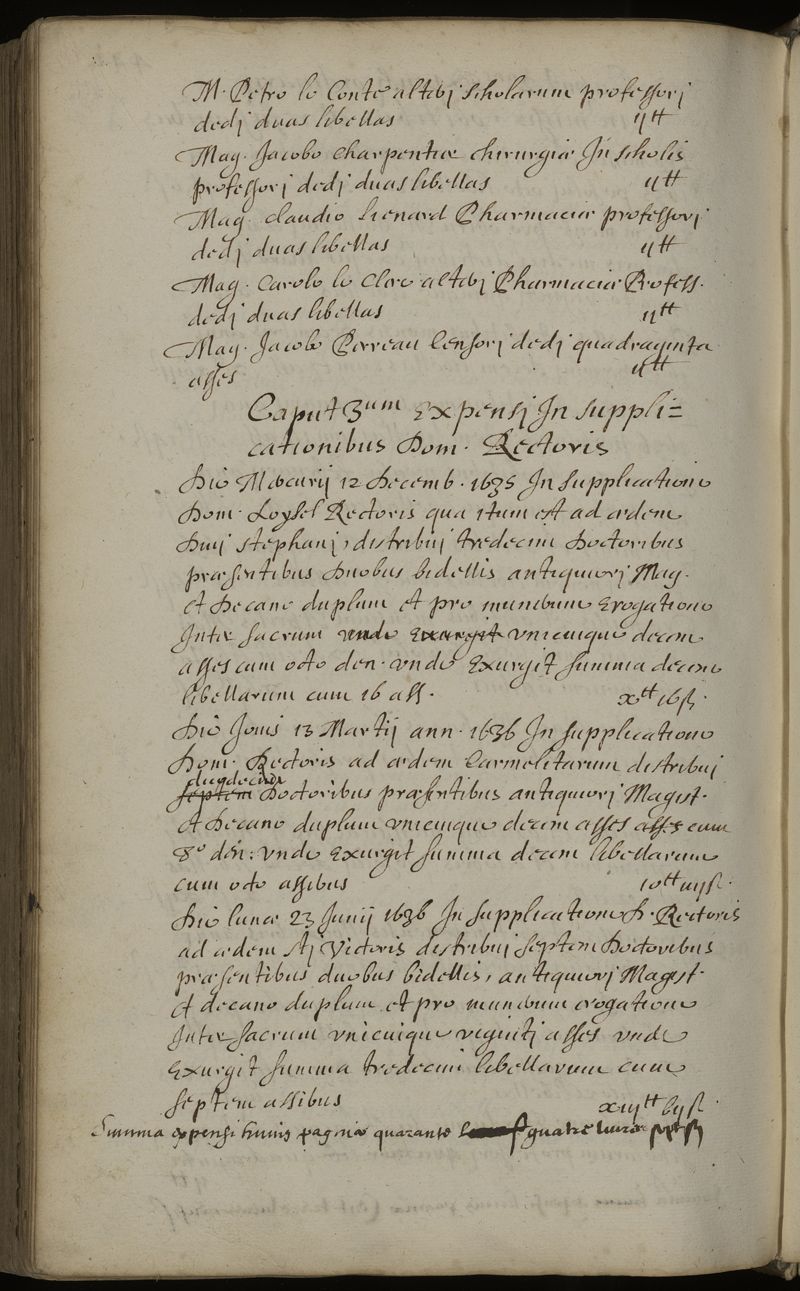 M. Petro le Conte alterj scholarum professorj
dedj duas libellas ij tt
Mag. Jacobo Charpentier chirurgiæ In scholis
professorj dedj duas libellas ij tt
Mag. Claudio Lienard Pharmaciæ professorj
dedj duas libellas ij tt
Mag. Carolo le Clerc alterj Pharmaciæ Profess.
dedj duas libellas ij tt
Mag. Jacobo Perreau Censorj dedj quadraginta
asses ij tt
Caput 3um Expensj In suppli=
cationibus Dom. Rectoris
Die Mercurij 12 Decemb. 1635 In supplicatione
Dom. Loysel Rectoris qua itum est ad ædem
Diuj stephanj, distribuj tredecim Doctoribus
præsentibus Duobus bidellis antiquiorj Mag.
et Decano duplum et pro munerum erogatione
Inter sacrum unde exurgit vnicuique decem
asses cum octo den. vnde Exurgit summa decem
libellarum cum 16 ass. xtt 16 ß.
Die Jouis 13 Martij ann. 1636 In supplicatione
Dom. Rectoris ad ædem Carmelitarum distribuj
duodecim
septem Doctoribus præsentibus antiquiorj Magist.
et Decano duplum vnicuique decem asses asses cum
8o den: vnde exurgit summa decem libellarum
cum octo assibus 10tt viijß.
Die lunæ 23 Junij 1636 In supplicatione D. Rectoris
ad ædem stj Victoris distribuj septem Doctoribus
præsentibus duobus bidellis, antiquiorj Magist.
et decano duplum et pro munerum erogatione
Inter sacrum vnicuique vigintj asses vnde
Exurgit summa tredecim libellarum cum
septem assibus xiijtt vijß.
Summa expensi huius paginæ quarante quatre liures